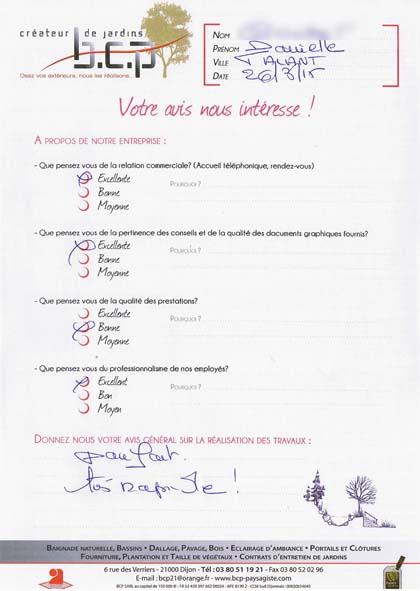 créateur de jardins
b.c.p
Osez vos extérieurs, nous les réalisons...
NOM
PRÉNOM Danielle
VILLE TALANT
DATE 26/8/15
Votre avis nous intéresse !
A PROPOS DE NOTRE ENTREPRISE :
- Que pensez vous de la relation commerciale? (Accueil téléphonique, rendez-vous)
Excellente POURQUOI ?
Bonne
Moyenne
- Que pensez vous de la pertinence des conseils et de la qualité des documents graphiques fournis?
Excellente POURQUOI ?
Bonne
Moyenne
- Que pensez vous de la qualité des prestations?
Excellente POURQUOI ?
Bonne
Moyenne
- Que pensez vous du professionnalisme de nos employés?
Excellent POURQUOI ?
Bon
Moyen
DONNEZ NOUS VOTRE AVIS GÉNÉRAL SUR LA RÉALISATION DES TRAVAUX :
!
BAIGNADE NATURELLE, BASSINS • DALLAGE, PAVAGE, BOIS • ECLAIRAGE D'AMBIANCE • PORTAILS ET CLÔTURES
FOURNITURE, PLANTATION ET TAILLE DE VÉGÉTAUX • CONTRATS D'ENTRETIEN DE JARDINS
6 rue des Verriers - 21000 Dijon - Tél : 03 80 51 19 21 - Fax 03 80 52 02 96
E-mail : bcp21@orange.fr - www.bcp-paysagiste.com